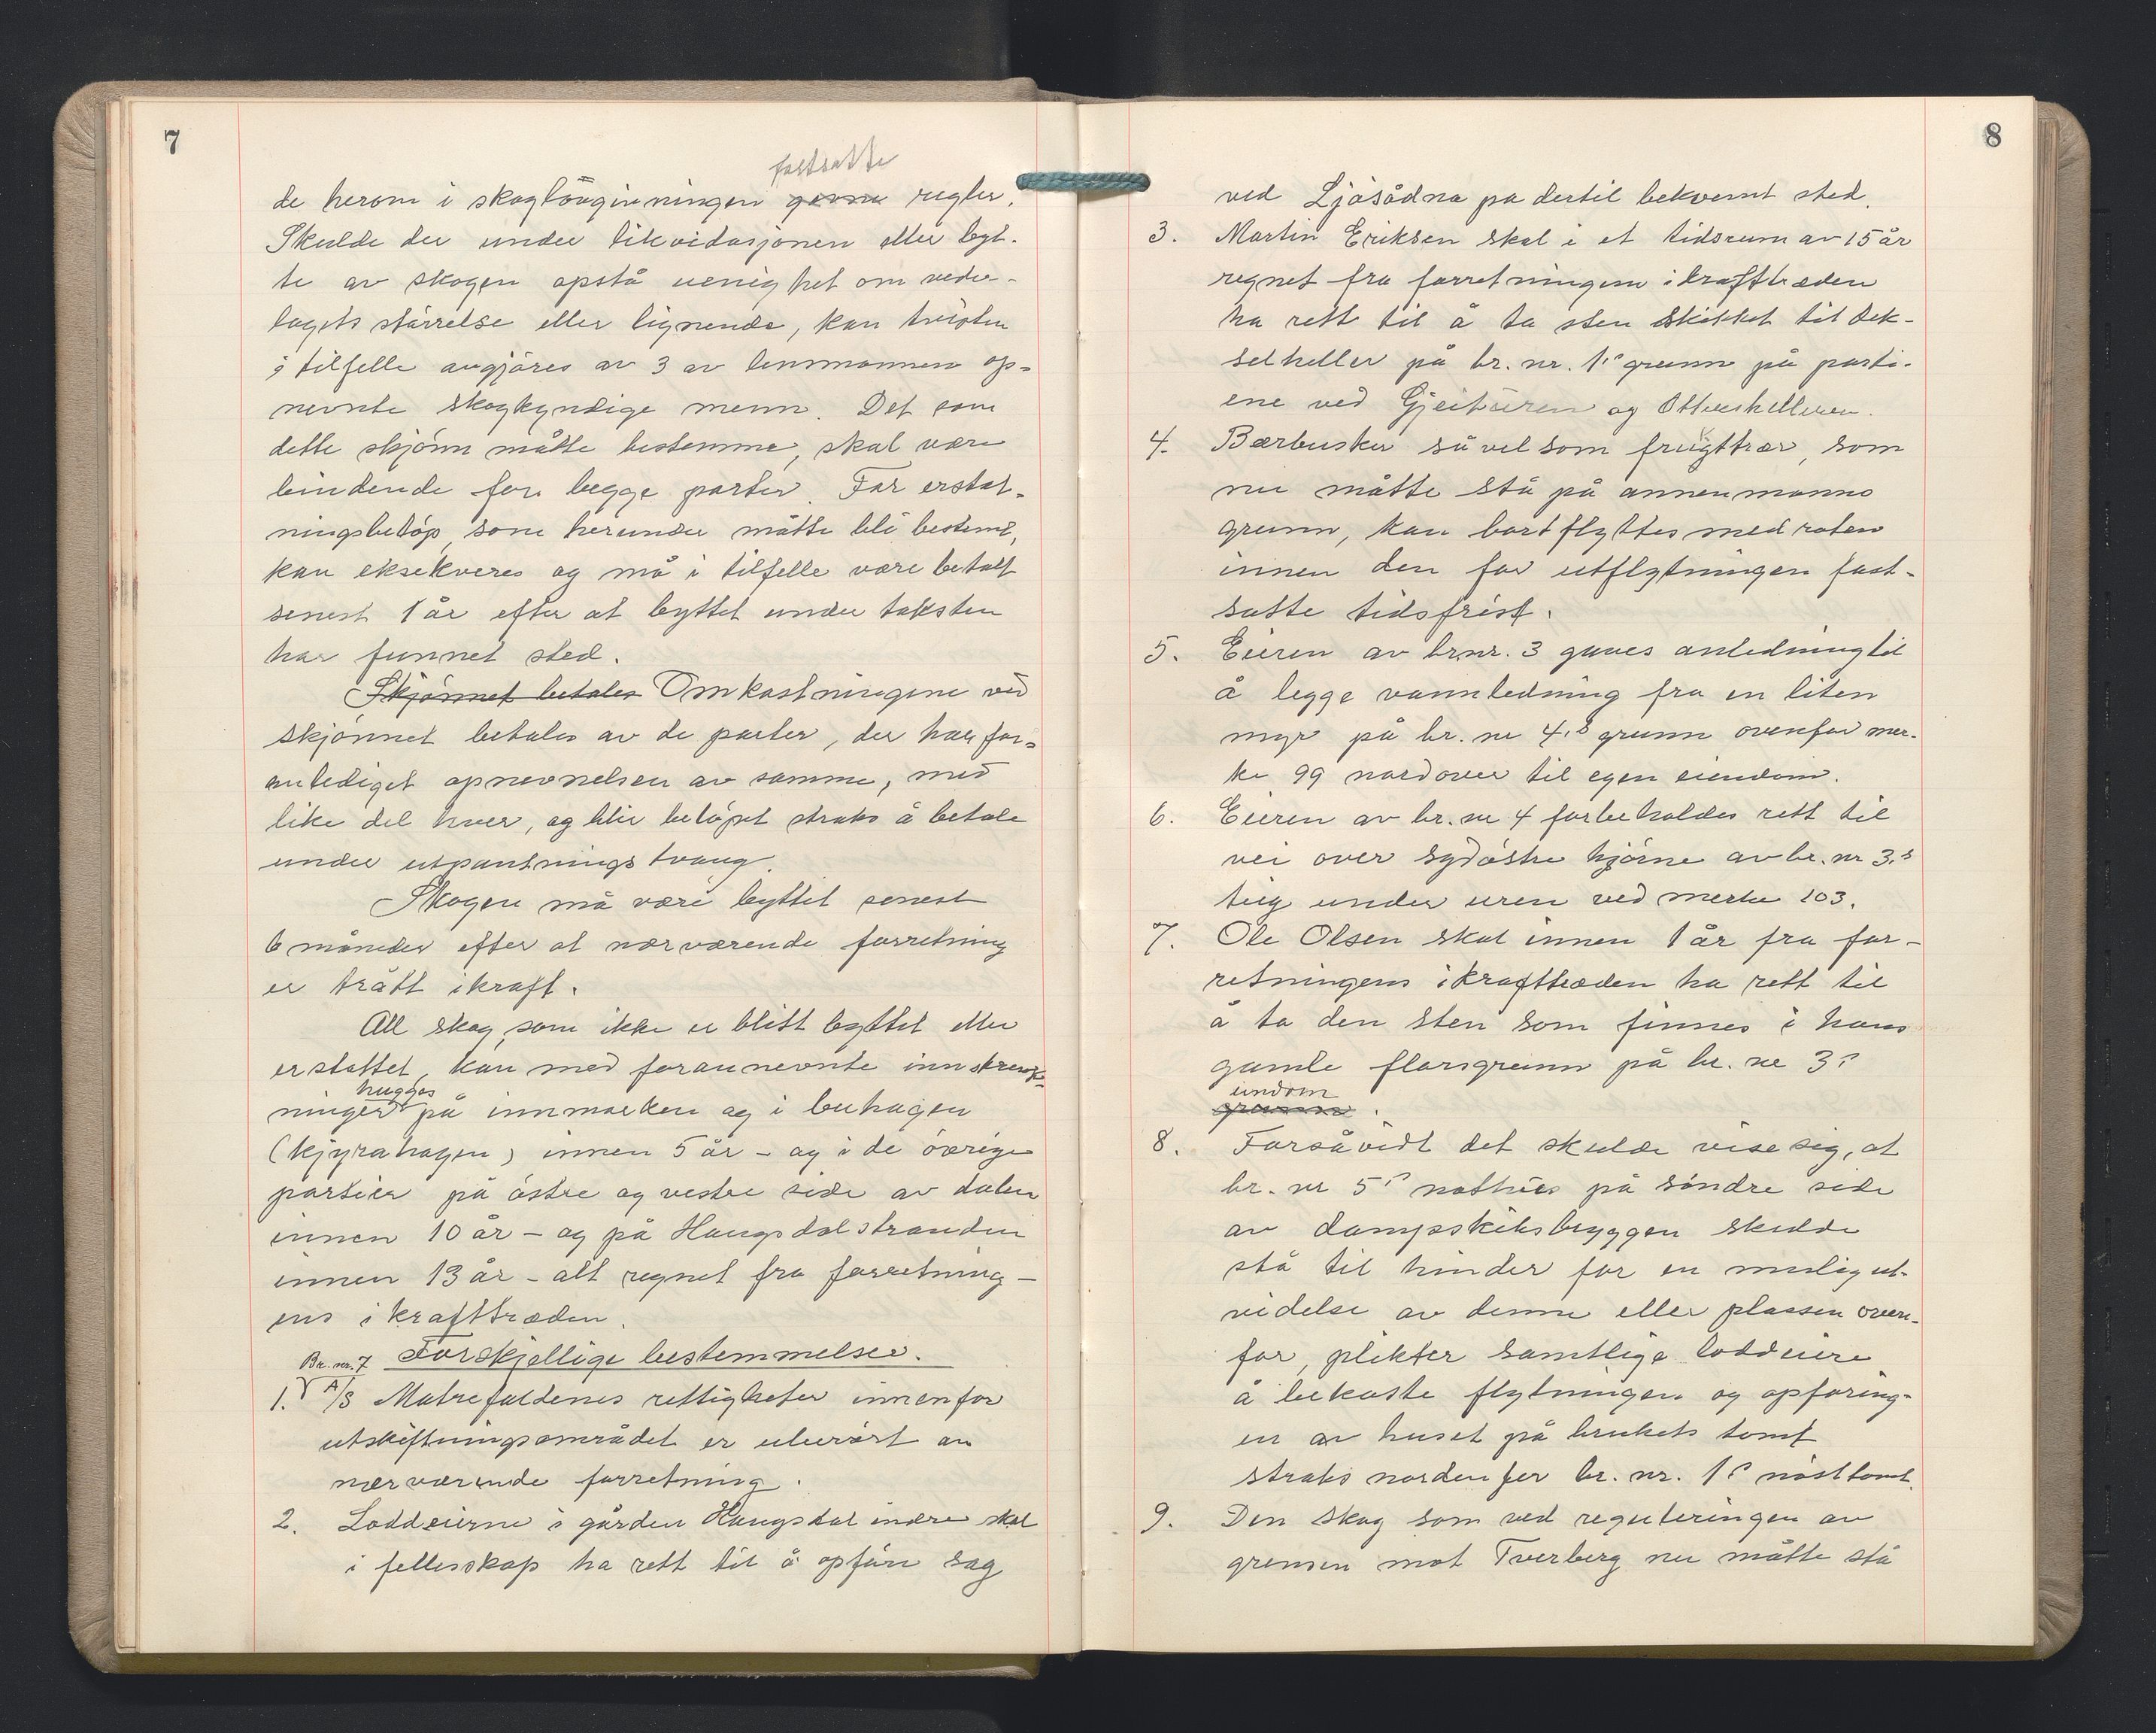 7
fastsatte
de herom i skoglovgivningen givne regler.
Skulde der under likvidasjonen eller byt-
te av skogen opstå uenighet om veder-
lagets størrelse eller lignende, kan tvisten
i tilfelle avgjøres av 3 av lensmannen op-
nevnte skogkyndige menn. Det som
dette skjønn måtte bestemme, skal være
bindende for begge parter. For erstat-
ningsbeløp, som herunder måtte bli bestemt,
kan eksekveres og må i tilfelle være betalt
senest 1 år efter at byttet under taksten
har funnet sted.
Skjønnet betales Omkostningene ved
skjønnet betales av de parter, der har for-
anlediget opnevnelsen av samme, med
like del hver, og blir beløpet straks å betale
under utpantningstvang.
Skogen må være byttet senest
6 måneder efter at nærværende forretning
er trått ikraft.
All skog, som ikke er blitt byttet eller
erstattet, kan med forannevnte innskrenk-
hugges
ninger på innmarken og i buhagen
(kjyrahagen) innen 5 år - og i de øvrige
partier på østre og vestre side av dalen
innen 10 år - og på Haugsdalstranden
innen 13 år - alt regnet fra forretning-
ens ikrafttræden.
Br. nr. 7 Forskjellige bestemmelser.
1. A/S Matrefaldenes rettigheter innenfor
utskiftningsområdet er uberørt av
nærværende forretning.
2. Loddeierne i gården Haugsdal indre skal
i fellesskap ha rett til å opføre sag
8
ved Ljosådna på dertil bekvemt sted.
3. Martin Eriksen skal i et tidsrum av 15 år
regnet fra forretningens ikrafttræden
ha rett til å ta sten skikket til tek-
selheller på br. nr. 1's grunn på parti-
ene ved Gjeitøren og Otterhelleren.
4. Bærbusker såvelsom frugttrær, som
nu måtte stå på annenmanns
grunn, kan bortflyttes med roten
innen den for utflytningen fast-
satte tidsfrist.
5. Eieren av br.nr. 3 gaves anledning til
å legge vannledning fra en liten
myr på br. nr 4's grunn ovenfor mer-
ke 99 nordover til egen eiendom.
6. Eieren av br. nr 4 forbeholdes rett til
vei over sydøstre hjørne av br. nr 3's
teig under uren ved merke 103.
7. Ole Olsen skal innen 1 år fra for-
retningens ikrafttræden ha rett til
å ta den sten som finnes i hans
gamle florsgrunn på br. nr 3's
eindom
grunn.
8. Forsåvidt det skulde vise sig, at
br. nr 5's nothus på søndre side
av dampskibsbryggen skulde
stå til hinder for en mulig ut-
videlse av denne eller plassen oven-
for, plikter samtlige loddeiere
å bekoste flytningen og opføring-
en av huset på brukets tomt
straks nordenfor br. nr. 1's nøsttomt.
9. Den skog som ved reguleringen av
grensen mot Tverberg nu måtte stå